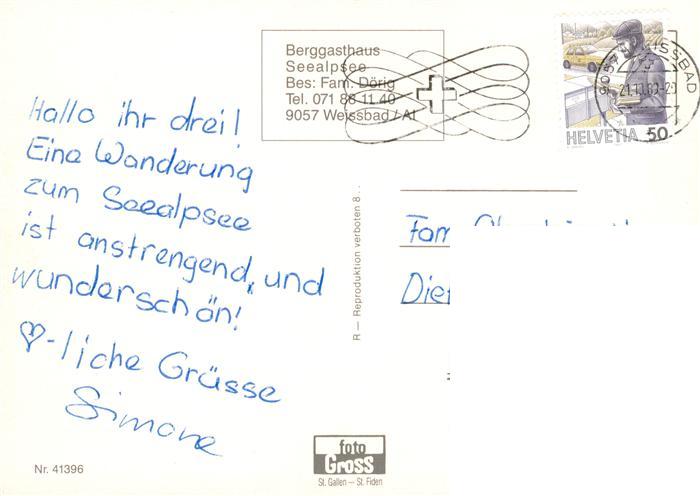 Hallo ihr drei!
Eine Wanderung
zum Seealpsee
ist anstrengend, und
wunderschön!
♡-liche Grüsse
Simone
Nr. 41396
Berggasthaus
Seealpsee
Bes: Fam. Dörig
Tel. 071 88 11 40
9057 Weissbad / AI
HELVETIA 50
R — Reproduktion verboten 8...
Fam
foto
Gross
St. Gallen — St. Fiden